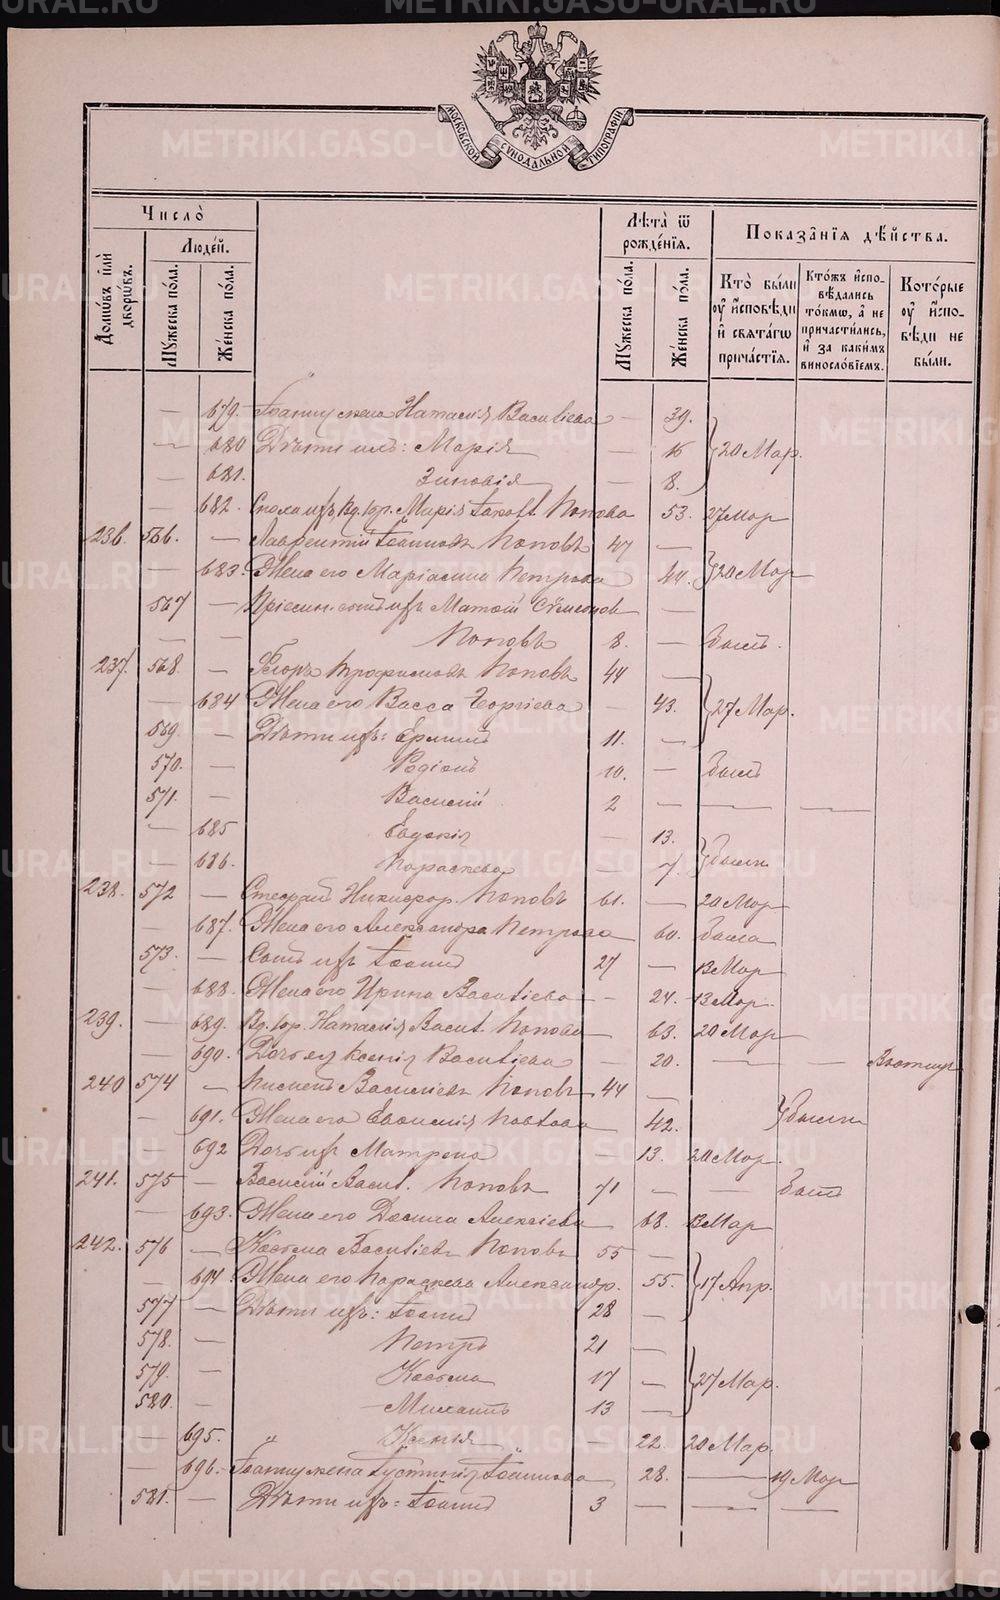 METRIKI.GASO-URAL.RU
МОСКОВСКОЙ СѴНОДАЛЬНОЙ ТИПОГРАФІИ
Число̀
Людє́й.
Домѡ́въ и҆лѝ дворѡ́въ.
Мꙋ́жеска по́ла.
Же́нска по́ла.
Лѣ́та ѿ рожде́нїѧ.
Мꙋ́жеска по́ла.
Же́нска по́ла.
Показа̑нїѧ дѣ́йства.
Кто̀ бы́ли ᲂу҆ и҆спо́вѣди и҆ свѧта́гѡ прича́стїѧ.
Кто́жъ и҆спо-
вѣ́дались
то́кмѡ, а҆ не
причасти́лись,
и҆ за каки́мъ
винослові́емъ.
Кото́рые ᲂу҆ и҆спо́-вѣди не бы́ли.
— 679. Іоанну жена Наталія Васильева — 39.
— 680 Дѣти ихъ: Марія — 16 } 20 Мар.
— 681. Зиновія — 8.
— 682. Сноха ихъ, вд. Марія Попова 53. 27 Мар
236. 566. — Лаврентій Іоанновъ Поповъ 47 —
— 683. Жена его Петрова 44. } 20 Мар
567 — Матѳій Сѷмеоновъ —
— — Поповъ 8. — былъ.
237. 568. — Трофимовъ Поповъ 44 —
— 684 Жена его Васса Георгіева — 43. } 27 Мар.
569. — Дѣти ихъ: Ермилъ 11. —
570. — Родіонъ 10. — былъ
571. — Василій 2 — — —
— 685 Евдокія — 13.
— 686. Параскева — 7. } были
238. 572 — Стефанъ Никифор. Поповъ 61. — 20 Мар
— 687. Жена его Александра Петрова — 60. была
573. — Сынъ ихъ Іоаннъ 27 — 13 Мар
— 688. Жена его Ирина Васильева — 24. 13 Мар.
239. — 689. Вд. Наталія Васил. Попова — 63. 20 Мар
— 690. Дочь ея Ксенія Васильева — 20. — —
240 574 — Васильевъ Поповъ 44 —
— 691. Жена его Павлова — 42. } были
— 692 Дочь ихъ Матрена — 13. 20 Мар.
241. 575 — Василій Васил. Поповъ 71 — — былъ
— 693. Жена его Алексіева — 68. 13 Мар
242. 576 — Косьма Васильевъ Поповъ 55 —
— 694 Жена его Параскева Александр. 55. } 17 Апр.
577 — Дѣти ихъ: Іоаннъ 28 —
578. — Петръ 21 —
579. — Косьма 17 — } 27 Мар.
580. — Михаилъ 13 —
— 695. „ Ксенія „ — 22. 20 Мар.
— 696. Іоанну жена Іустинія Іоаннова 28. — 19 Мар
581. — Дѣти ихъ: Іоаннъ 3 — — —